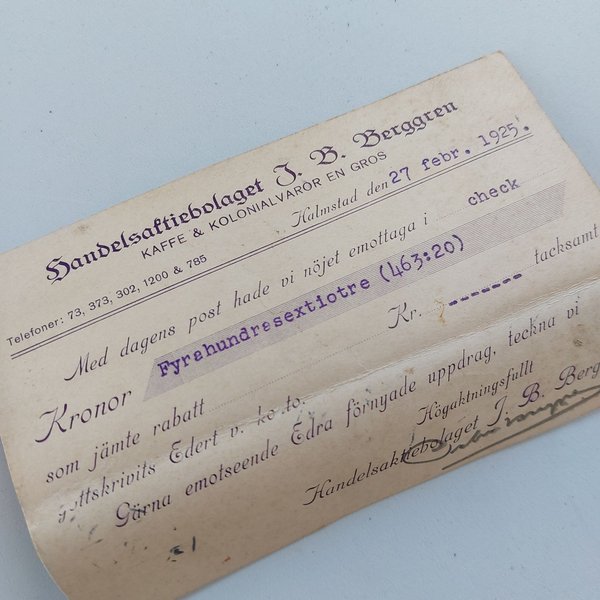 Handelsaktiebolaget J. B. Berggren
KAFFE & KOLONIALVAROR EN GROS
Telefoner: 73, 373, 302, 1200 & 785
Halmstad den 27 febr. 1925.
Med dagens post hade vi nöjet emottaga i check
Kronor Fyrahundrasextiotre (463:20)
som jämte rabatt Kr. ------- tacksamt
gottskrivits Edert v. konto.
Gärna emotseende Edra förnyade uppdrag, teckna vi
Högaktningsfullt
Handelsaktiebolaget J. B. Berg